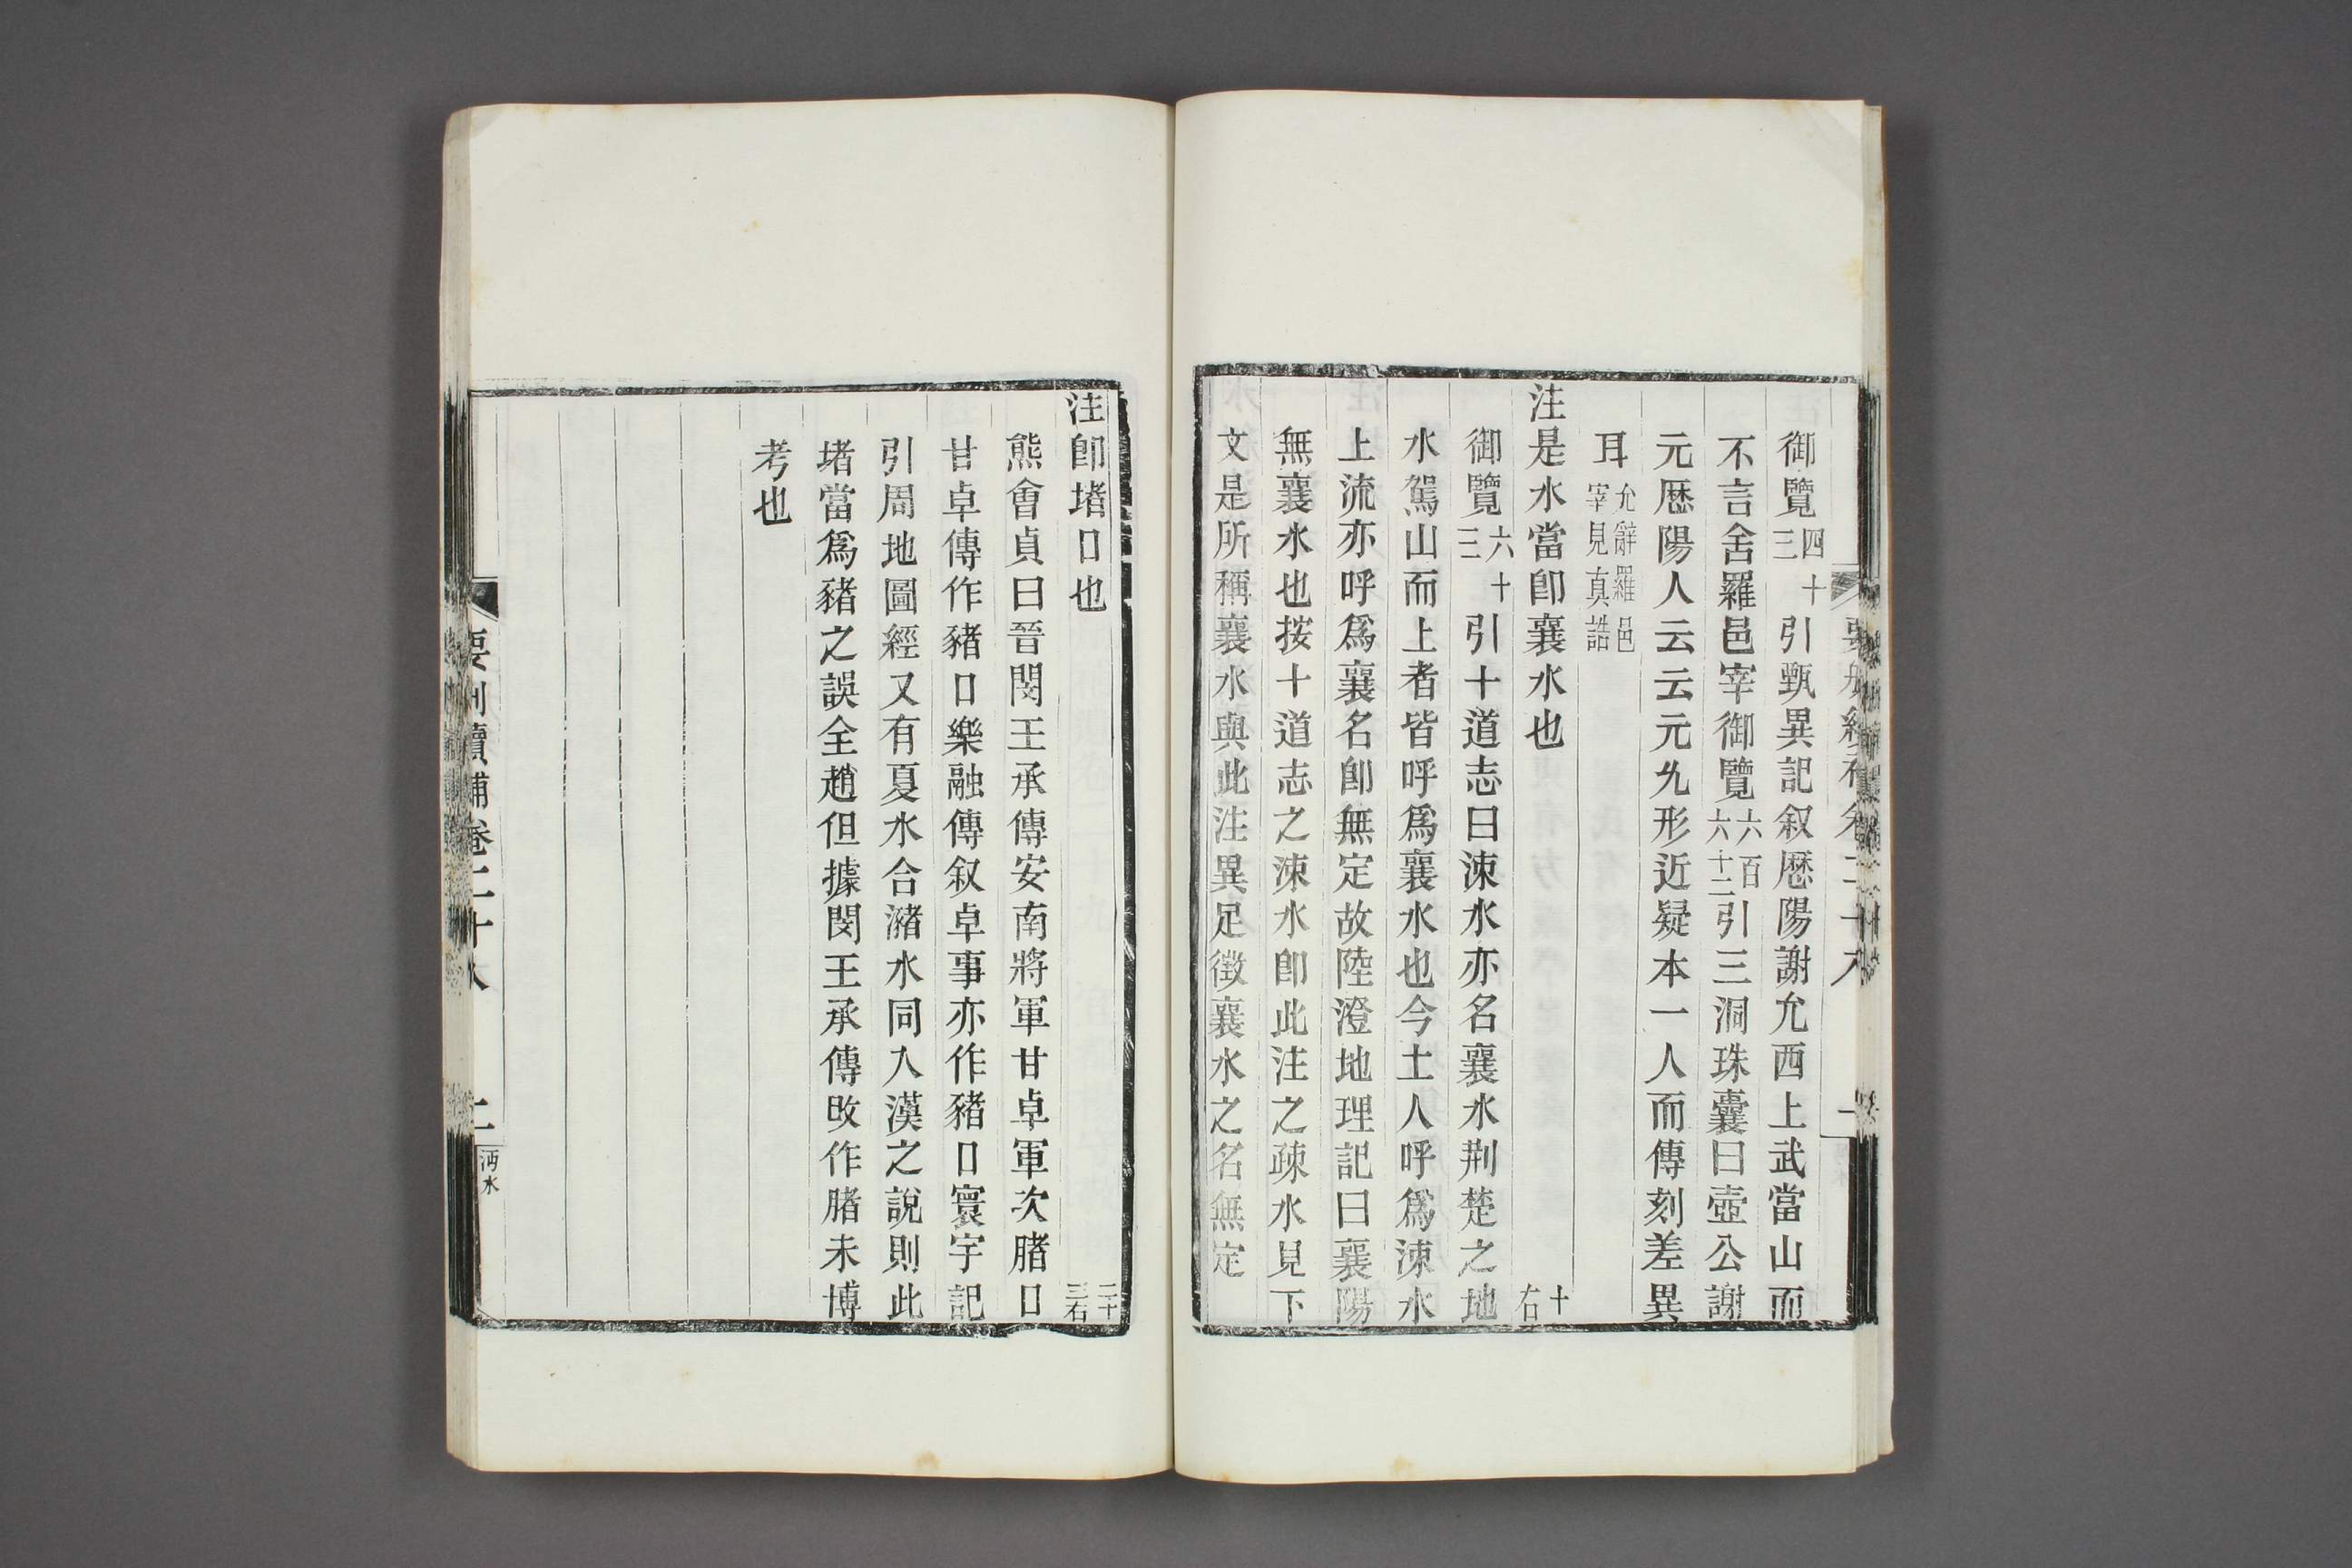 御覽四十三引甄異記叙歷陽謝允西上武當山而
不言舍羅邑宰御覽六百六十二引三洞珠囊曰壺公謝
元歷陽人云云元允形近疑本一人而傳刻差異
耳允辭羅邑宰見真誥
注是水當卽襄水也十右
御覽六十三引十道志曰涑水亦名襄水荆楚之地
水駕山而上者皆呼爲襄水也今土人呼爲涑水
上流亦呼爲襄名卽無定故陸澄地理記曰襄陽
無襄水也按十道志之涑水卽此注之疎水見下
文是所稱襄水與此注異足徵襄水之名無定
注卽堵口也二十三右
熊會貞曰晉閔王承傳安南將軍甘卓軍次腤口
甘卓傳作豬口樂融傳叙卓事亦作豬口寰宇記
引周地圖經又有夏水合瀦水同入漢之說則此
堵當爲豬之誤全趙但據閔王承傳改作腤未博
考也
要刪續補卷二十八
二
沔水